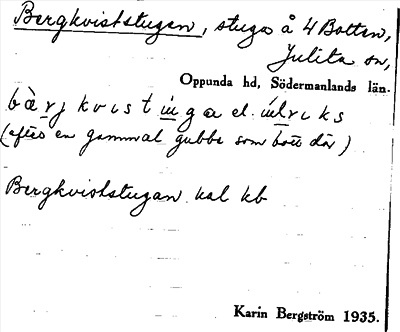 Bergkviststugan, stuga å 4 Bottan,
Julita sn,
Oppunda hd, Södermanlands län.
bærjkvistuga el. ulriks
(efter en gammal gubbe som bott där)
Bergkviststugan kal kb
Karin Bergström 1935.